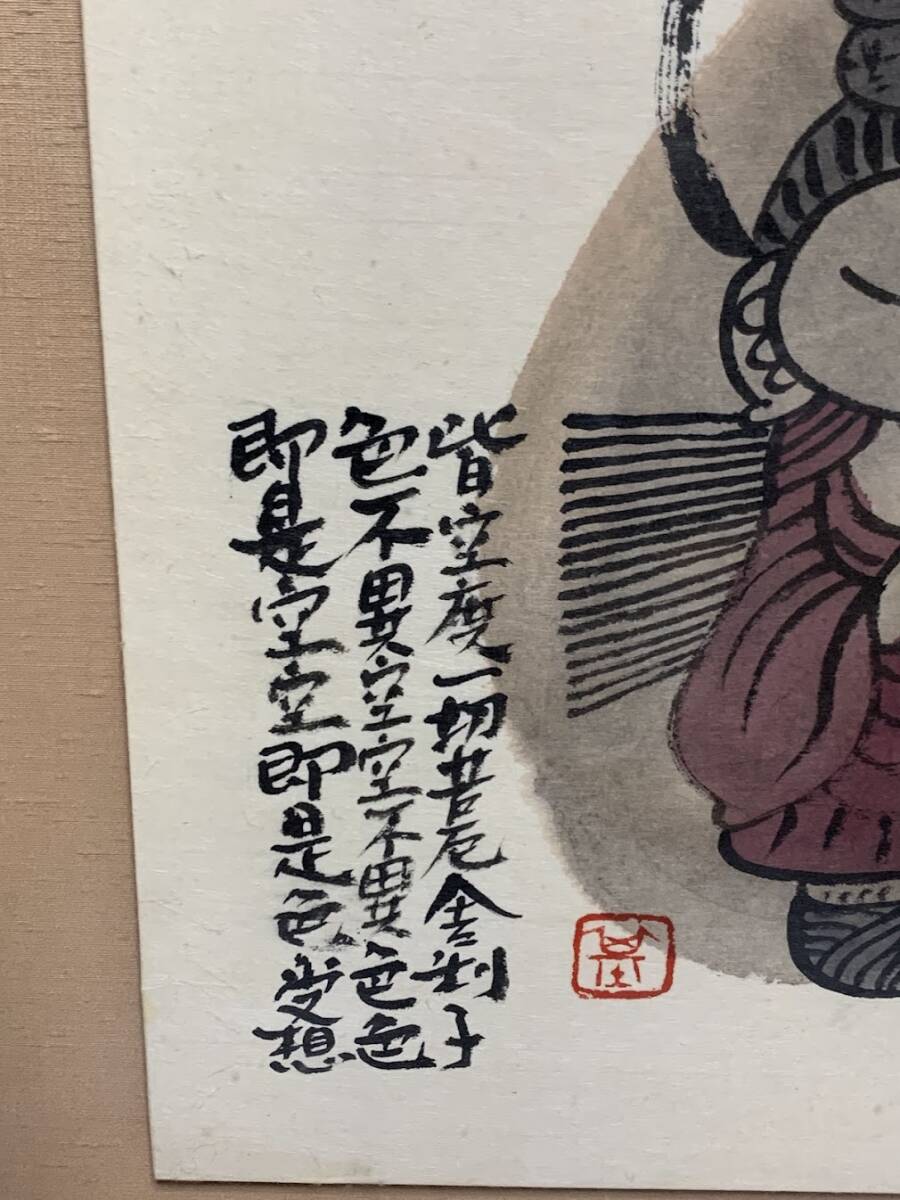 皆空度一切苦厄舎利子
色不異空空不異色色
即是空空即是色受想